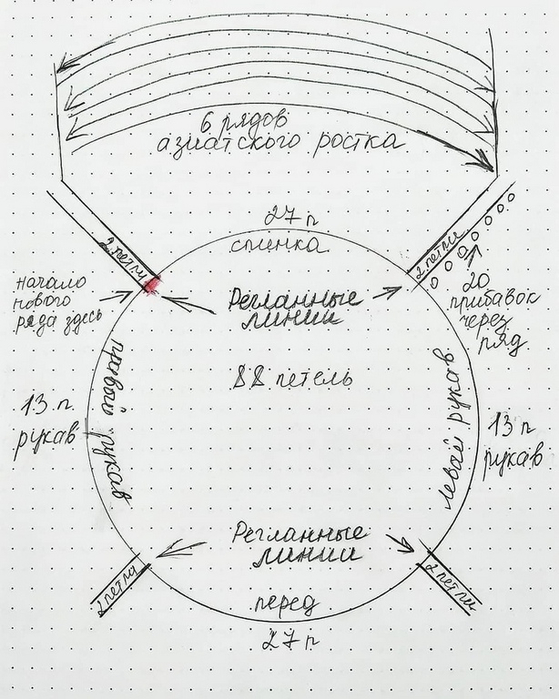 6 рядов
азиатского ростка
27 п
спинка
2 петли
2 петли
начало
нового
ряда здесь
Регланные
линии
20
прибавок
через
ряд.
88 петель
правый рукав
13 п.
рукав
левый рукав
13 п
рукав
Регланные
линии
2 петли
2 петли
перед
27 п